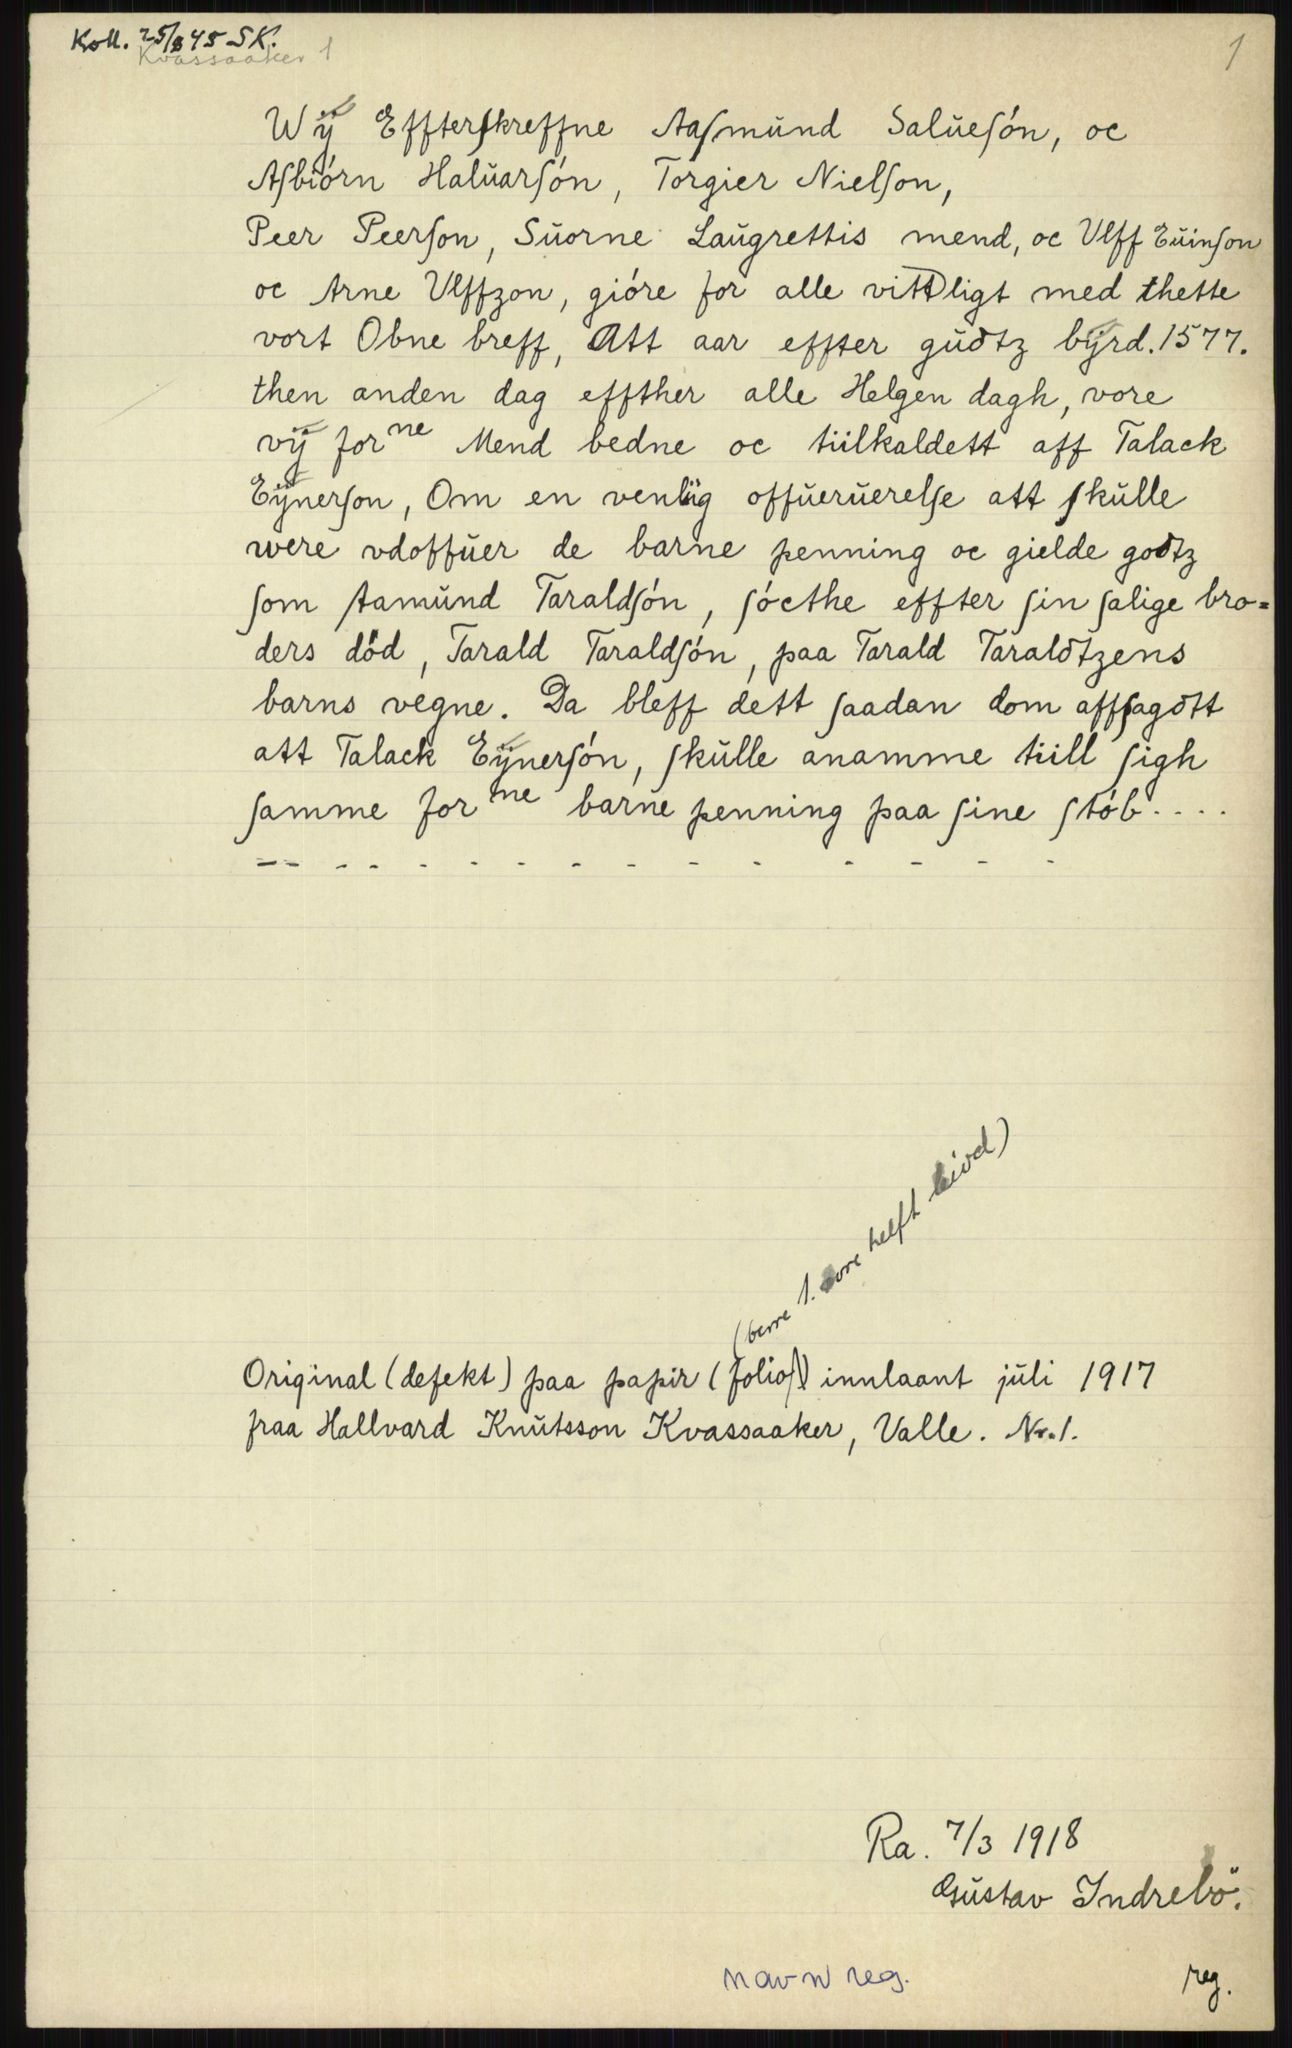 Koll. 25/8 45 SK.
Kvassaaker 1
1
Wÿ Effterſkreffne Aaſmŭnd Salŭeſón, oc
Aſbiórn Halŭarſón, Torgier Nielſon,
Peer Peerſon, Sŭorne Laŭgrettis mend, oc Vlff Eŭinſon
oc Arne Vlffzon, gióre for alle vittligt med thette
vort Obne breff, Att aar effter gŭdtz bÿrd. 1577.
then anden dag effther alle Helgen dagh, vore
vÿ forne Mend bedne oc tiilkaldett aff Talack
Eÿnerſon, Om en venlüg offŭerŭerelſe att ſkŭlle
were vdoffŭer de barne penning oc gielde godtz
ſom Aamŭnd Taraldſón, ſócthe effter ſin ſalige bro=
ders död, Tarald Taraldſón, paa Tarald Taraldtzens
barns vegne. Da bleff dett ſaadan dom affſagdtt
att Talack Eÿnerſón, ſkŭlle anamme tiill ſigh
ſamme forne barne penning paa ſine ſtób....
— - - - - - - - - - - - -
(berre 1. øvre helft leivd)
Original (defekt) paa papir (folio) innlaant jŭli 1917
fraa Hallvard Knŭtsson Kvassaaker, Valle. Nr. 1.
Ra. 7/3 1918
Gŭstav Indrebö.
navn reg.
reg.